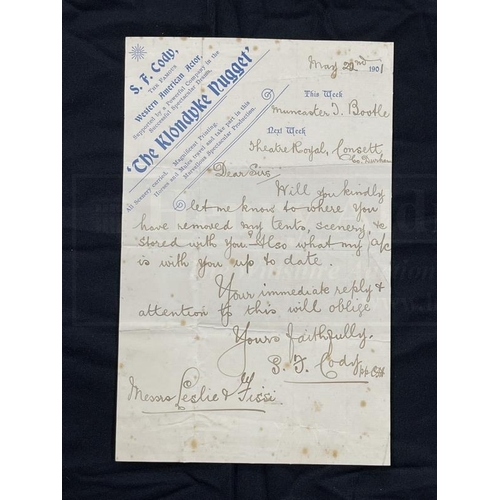 S. F. Cody,
The Famous
Western American Actor,
Supported by a Powerful Company in the
Successful Spectacular Drama,
'The Klondyke Nugget'
All Scenery carried. Magnificent Printing.
Horses and Mules travel and take part in this
Marvellous Spectacular Production.
May 22nd 1901
This Week
Muncaster T. Bootle
Next Week
Theatre Royal, Consett
Co. Durham
Dear Sirs
Will you kindly
let me know to where you
have removed my tents, scenery, &c
stored with you. Also what my a/c
is with you up to date.
Your immediate reply &
attention to this will oblige
Yours faithfully.
S. F. Cody
pp
Messrs Leslie & Fissi